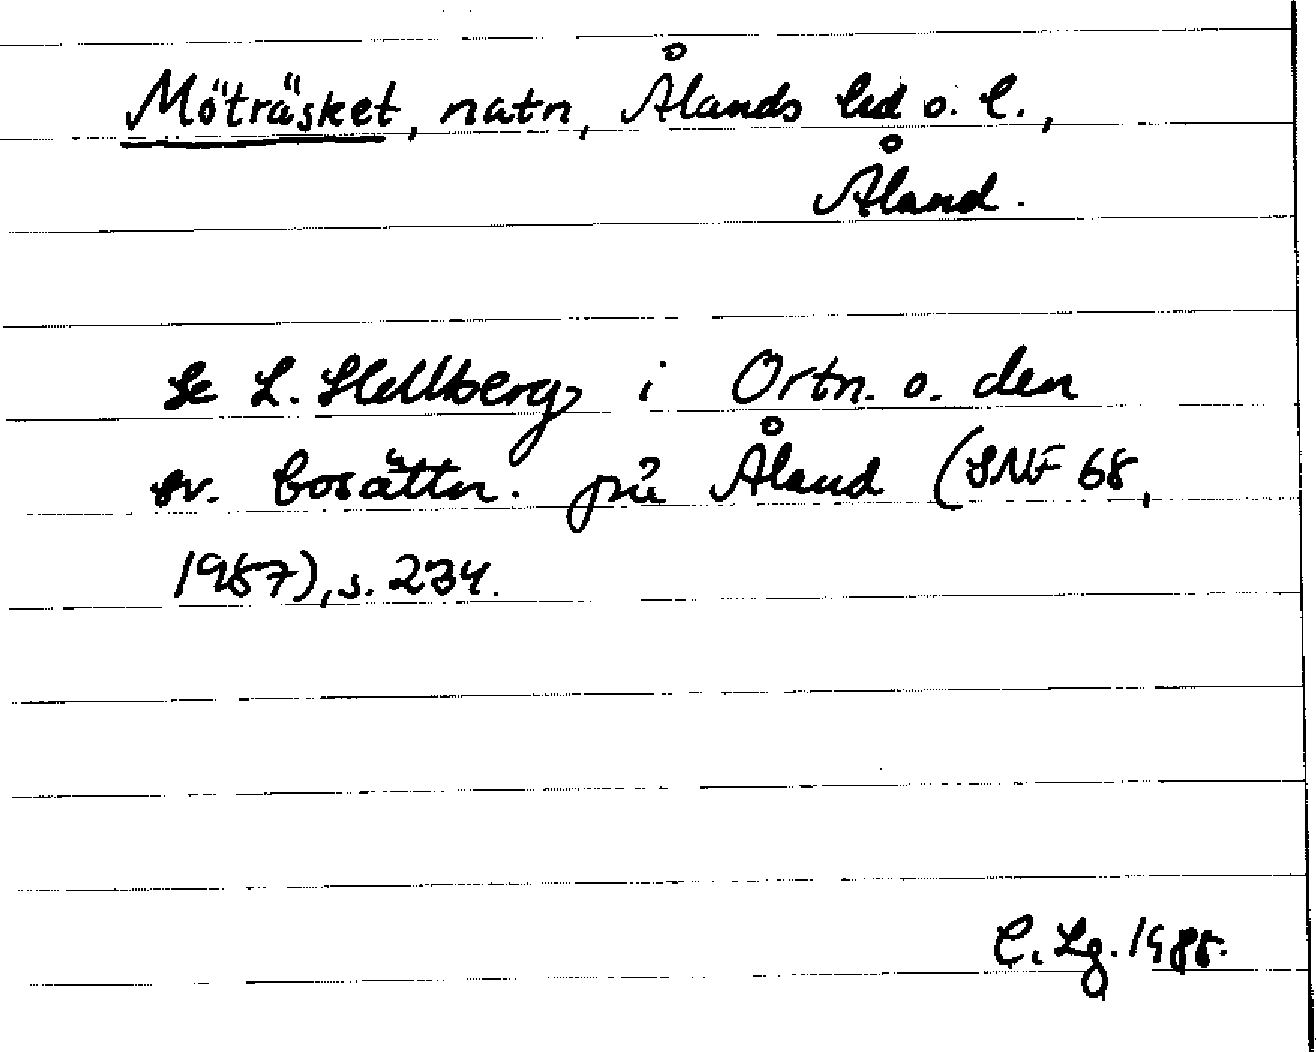 Möträsket, natn, Ålands hd o. l.,
Åland.
Se L. Hellberg i Ortn. o. den
sv. bosättn. på Åland (SNF 68,
1987), s. 234.
C. Lg. 1988.